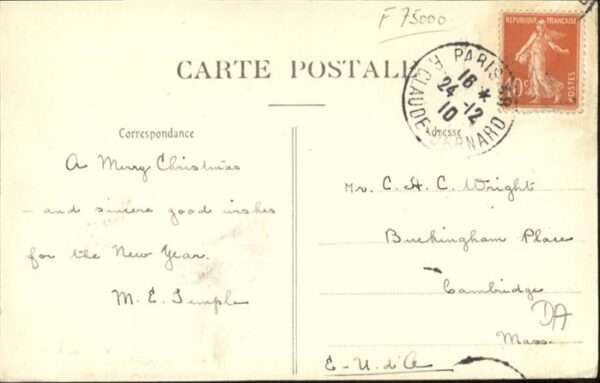 F 75000
CARTE POSTALE
RÉPUBLIQUE FRANÇAISE
10c
POSTES
PARIS
R. CLAUDE BERNARD
16 *
24 -12
10
Correspondance
Adresse
A Merry Christmas
- and sincere good wishes
for the New Year.
M. E. Temple
Mr. C. H. C. Wright
Buckingham Place
Cambridge
Mass.
E-U. d'A
DA